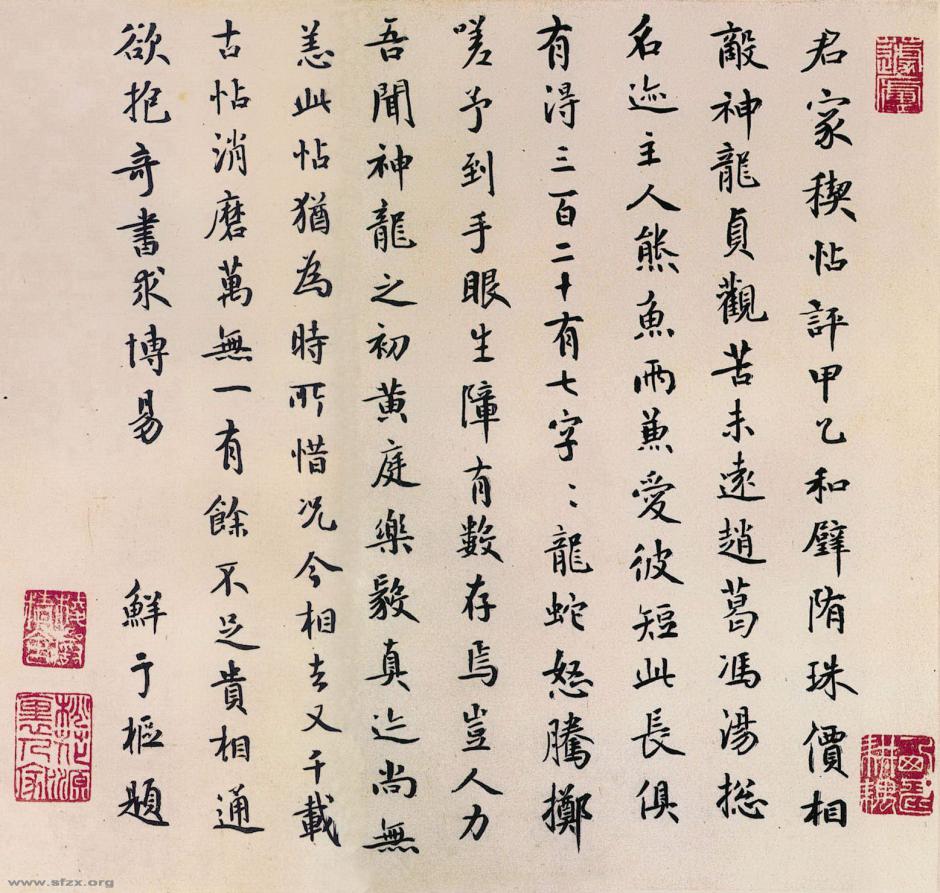 君家稧帖評甲乙和璧隋珠價相
敵神龍貞觀苦未遠趙葛馮湯揔
名迹主人熊魚兩兼愛彼短此長俱
有得三百二十有七字〻龍蛇怒騰擲
嗟予到手眼生障有數存焉豈人力
吾聞神龍之初黄庭樂毅真迹尚無
恙此帖猶為時所惜况今相去又千載
古帖消磨萬無一有餘不足貴相通
欲抱奇書求博易 鮮于樞題
www.sfzx.org